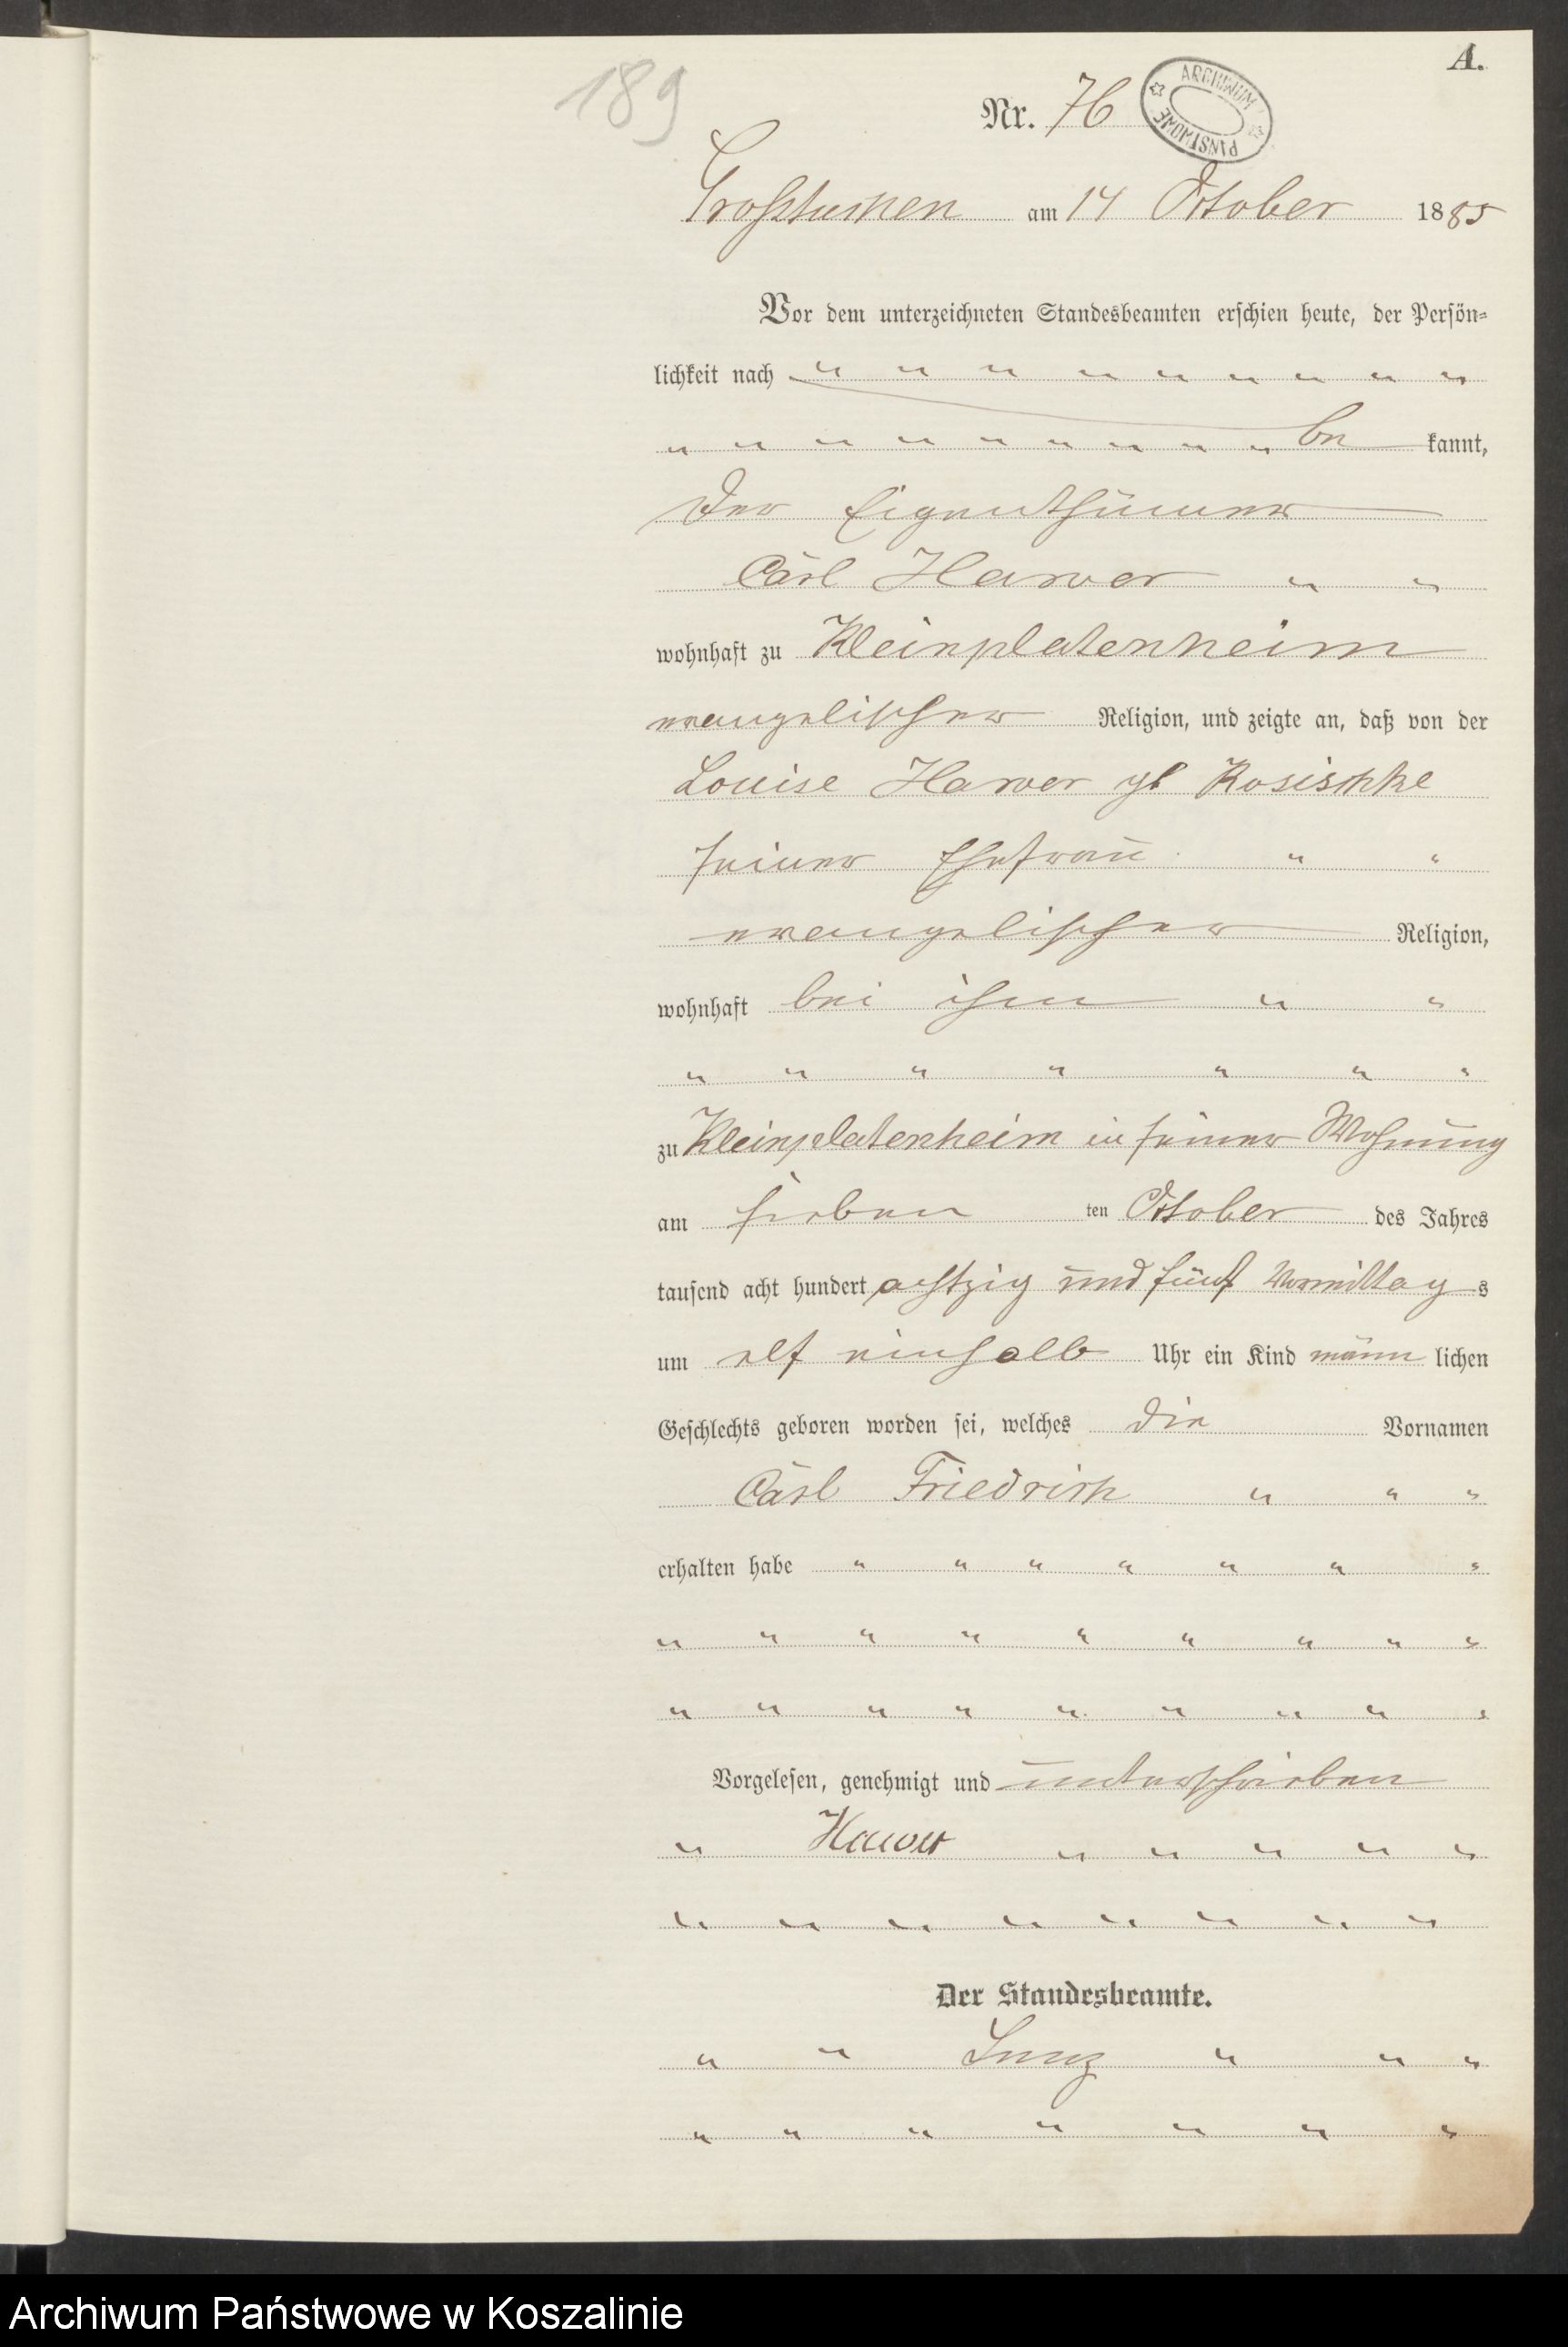 A.
189
Nr. 76
ARCHIWUM PAŃSTWOWE
Großtuchen am 14 October 1885
Vor dem unterzeichneten Standesbeamten erschien heute, der Persön-
lichkeit nach " " " " " " " " "
" " " " " " " " " be kannt,
der Eigenthümer
Carl Hawer " "
wohnhaft zu Kleinplatenheim
evangelischer Religion, und zeigte an, daß von der
Louise Hawer gb
seiner Ehefrau " "
evangelischer Religion,
wohnhaft bei ihm " "
" " " " " " "
zu Kleinplatenheim in seiner Wohnung
am sieben ten October des Jahres
tausend acht hundert achtzig und fünf Vormittag s
um elf einhalb Uhr ein Kind männ lichen
Geschlechts geboren worden sei, welches die Vornamen
Carl Friedrich " " "
erhalten habe " " " " " " "
" " " " " " " " "
" " " " " " " " "
Vorgelesen, genehmigt und unterschrieben
" Hawer " " " " "
" " " " " " " "
Der Standesbeamte.
" " " " "
" " " " " " "
Archiwum Państwowe w Koszalinie